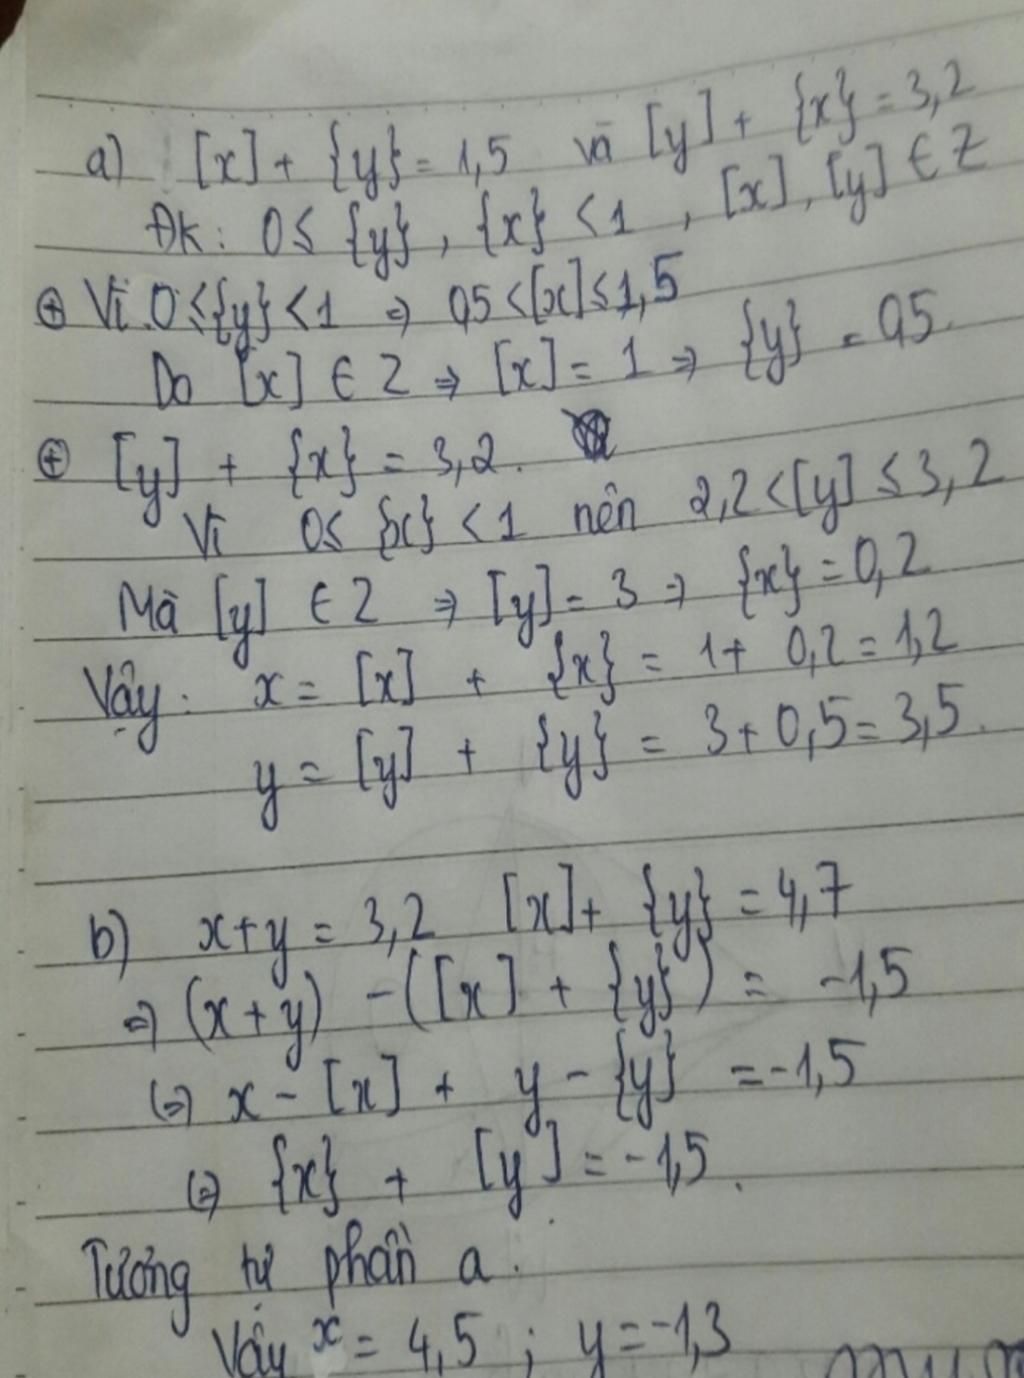 a) [x] + {y} = 1,5 và [y] + {x} = 3,2
Đk: 0 ≤ {y}, {x} < 1, [x], [y] ∈ Z
⊕ Vì 0 ≤ {y} < 1 ⇒ 0,5 < [x] ≤ 1,5
Do [x] ∈ Z ⇒ [x] = 1 ⇒ {y} = 0,5.
⊕ [y] + {x} = 3,2.
Vì 0 ≤ {x} < 1 nên 2,2 < [y] ≤ 3,2
Mà [y] ∈ Z ⇒ [y] = 3 ⇒ {x} = 0,2
Vậy: x = [x] + {x} = 1 + 0,2 = 1,2
y = [y] + {y} = 3 + 0,5 = 3,5.
b) x + y = 3,2 [x] + {y} = 4,7
⇒ (x + y) - ([x] + {y}) = -1,5
(⇒ x - [x] + y - {y} = -1,5
(⇒ {x} + [y] = -1,5.
Tương tự phần a.
Vậy x = 4,5 ; y = -1,3